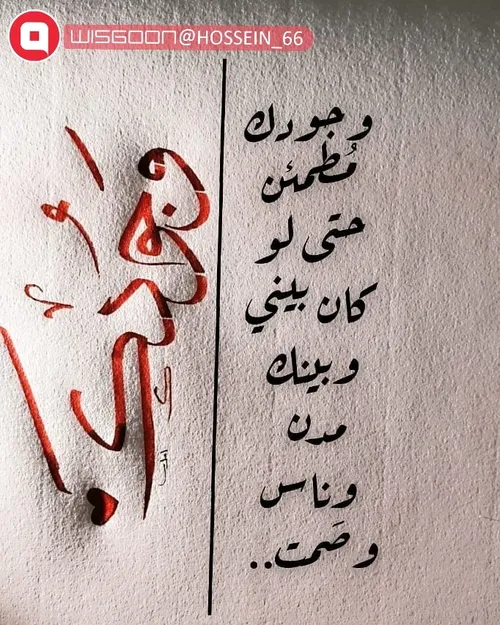 WISGOON@HOSSEIN_66
وجودك
مُطمئن
حتى لو
كان بيني
وبينك
مدن
وناس
وصَمت..
وجودك